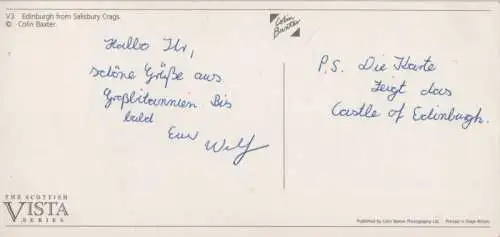 V3 Edinburgh from Salisbury Crags.
© Colin Baxter.
Colin
Baxter
Hallo Ihr,
schöne Grüße aus
Großbitannien Bis
bald
Euer Wolf
P.S. Die Karte
zeigt das
Castle of Edinburgh.
THE SCOTTISH
VISTA
SERIES
Published by Colin Baxter Photography Ltd. Printed in Great Britain.